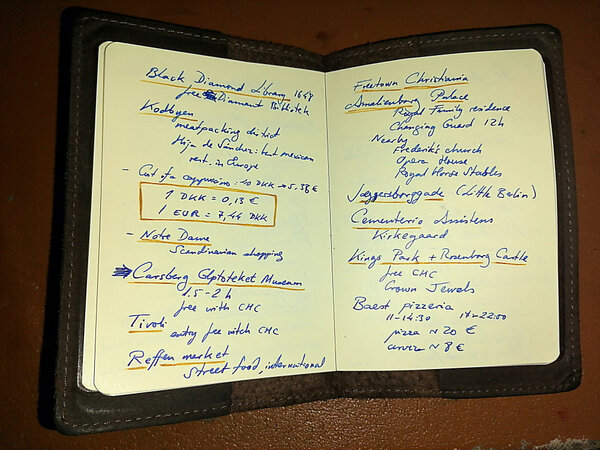 Black Diamond Library 1648
free Diamant
Kodbyen
meatpacking district
Hija de Sánchez: best mexican
rest. in Europe
- Cost of a cappuccino: 40 DKK → 5.58€
1 DKK = 0,13 €
1 EUR = 7,44 DKK
- Notre Dame
Scandinavian shopping
Carlsberg Glptoteket Museum
1.5-2 h
free with CHC
Tivoli
entry free with CHC
Reffen market
street food, international
Freetown Christiania
Amalienborg Palace
Royal Family residence
Changing Guard 12h
Nearby
Frederik's church
Opera House
Royal Horse Stables
Jaegersborggade (Little Berlin)
Cementerio Assistens
Kirkegaard
Kings Park + Rosenborg Castle
free CHC
Crown Jewels
Baest pizzeria
11-14:30 17-22:00
pizza ~ 20 €
cerveza ~ 8 €